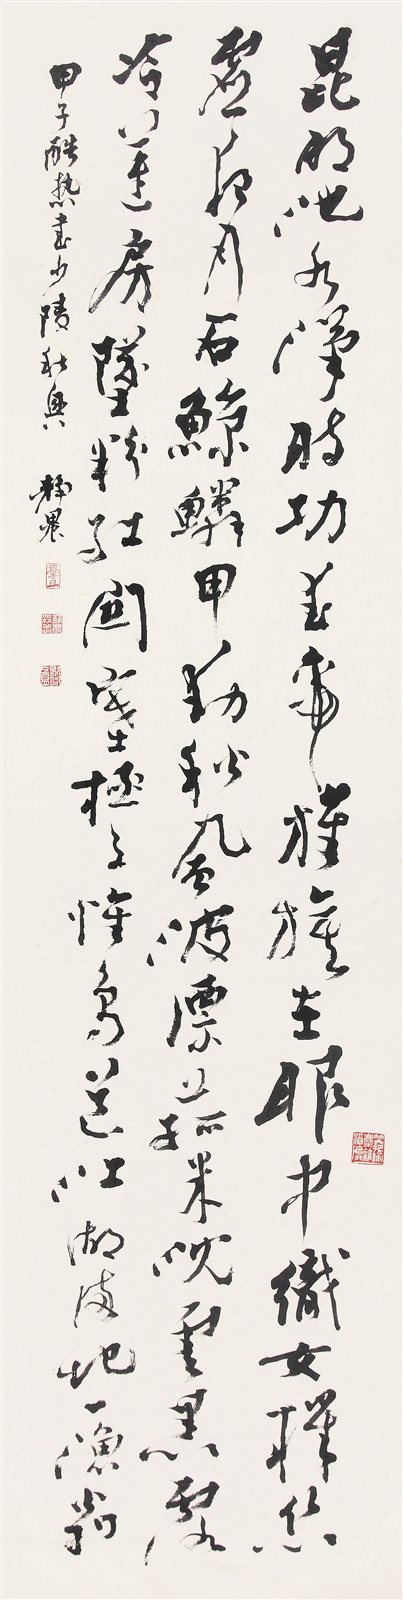 昆明池水漢時功武帝旌旗在眼中織女機絲
虛夜月石鯨鱗甲動秋風波漂菰米沈雲黑露
冷蓮房墜粉紅關塞極天惟鳥道江湖滿地一漁翁
甲子酷熱書少陵秋興 靜農